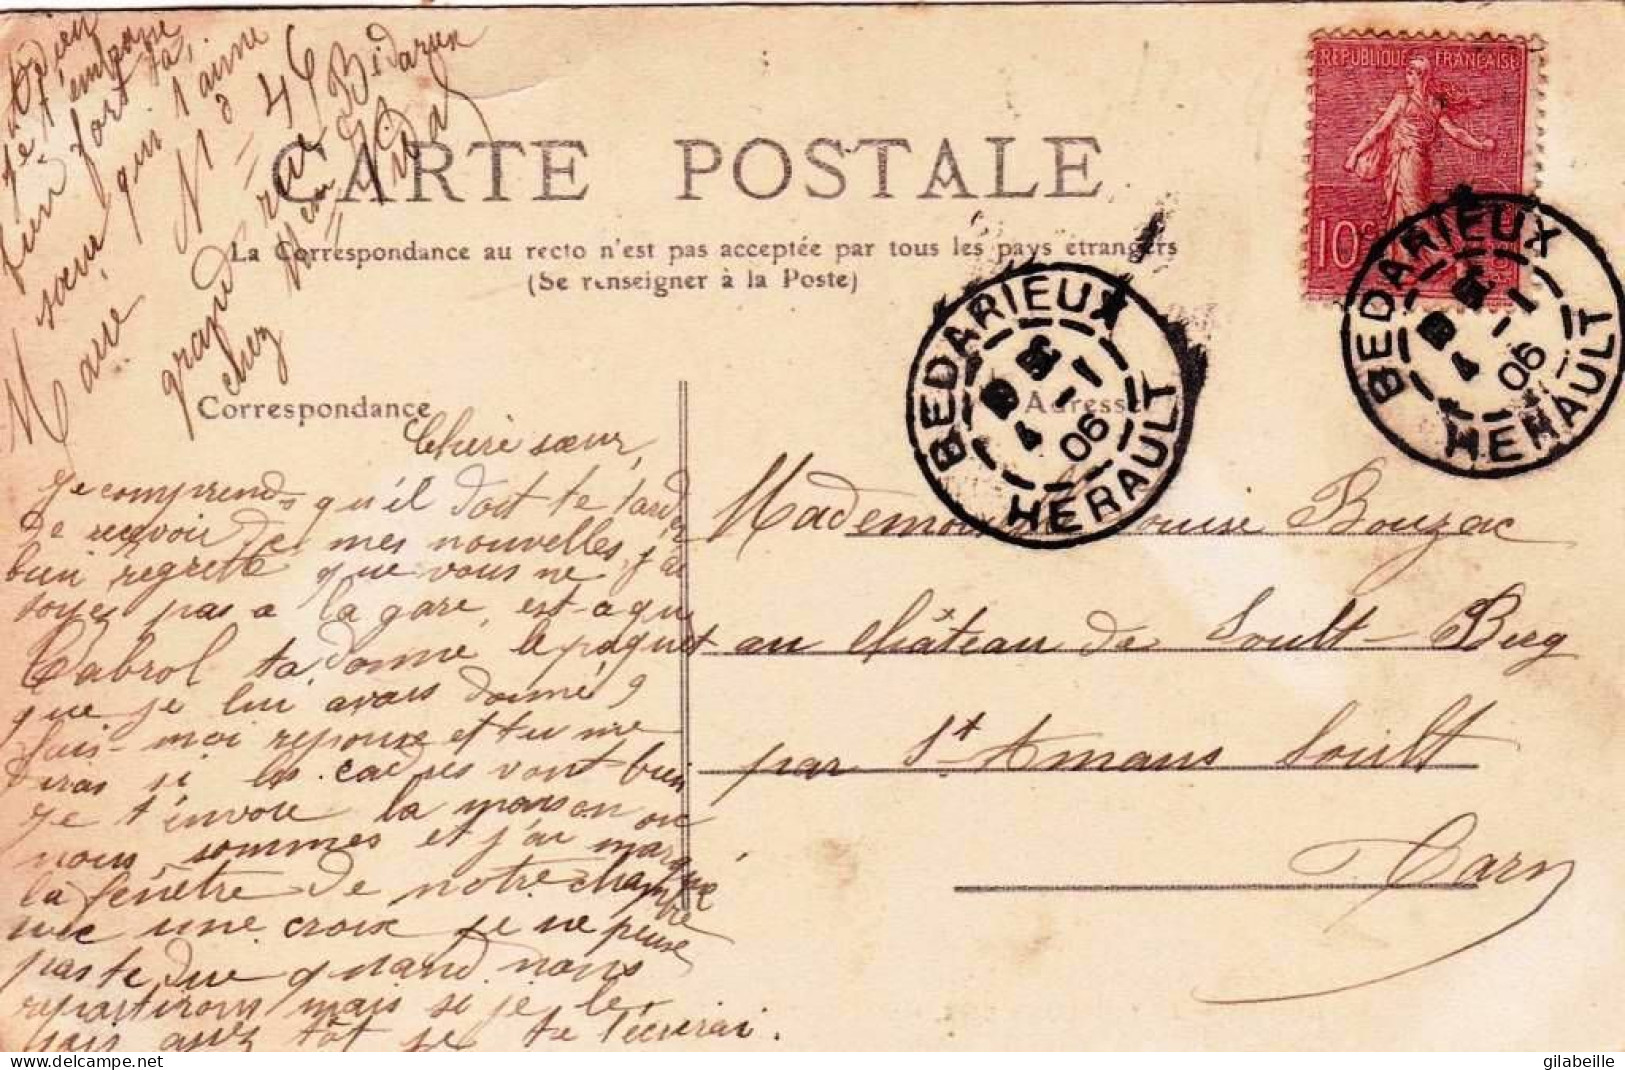 Adieu
je t'embrasse
bien fort ta
sœur qui t'aime
Marie
N° 46
grand rue Bédarieux
chez Men Vidal
RÉPUBLIQUE FRANÇAISE
10 c
CARTE POSTALE
La Correspondance au recto n'est pas acceptée par tous les pays étrangers
(Se renseigner à la Poste)
BEDARIEUX
4 -1
06
HERAULT
BEDARIEUX
4 -1
06
HERAULT
Correspondance
Adresse
Chère sœur,
Je comprends qu'il doit te tarder
de recevoir de mes nouvelles, j'ai
bien regretté que vous ne
soyes pas a la gare, est-a que
Cabrol ta donné le paquet
que je lui avais donné ?
fais-moi reponse et tu me
diras si les cadres vont bien
Je t'envoie la maison ou
nous sommes et j'ai marqué
la fenêtre de notre chambre
avec une croix je ne pense
pas te dire quand nous
repartirons mais si je le
sais assez tôt je te l'écrirai.
Mademoiselle Louise Bouzac
au château de Soult-Berg
par St Amans Soult
Tarn
delcampe.net
gilabeille